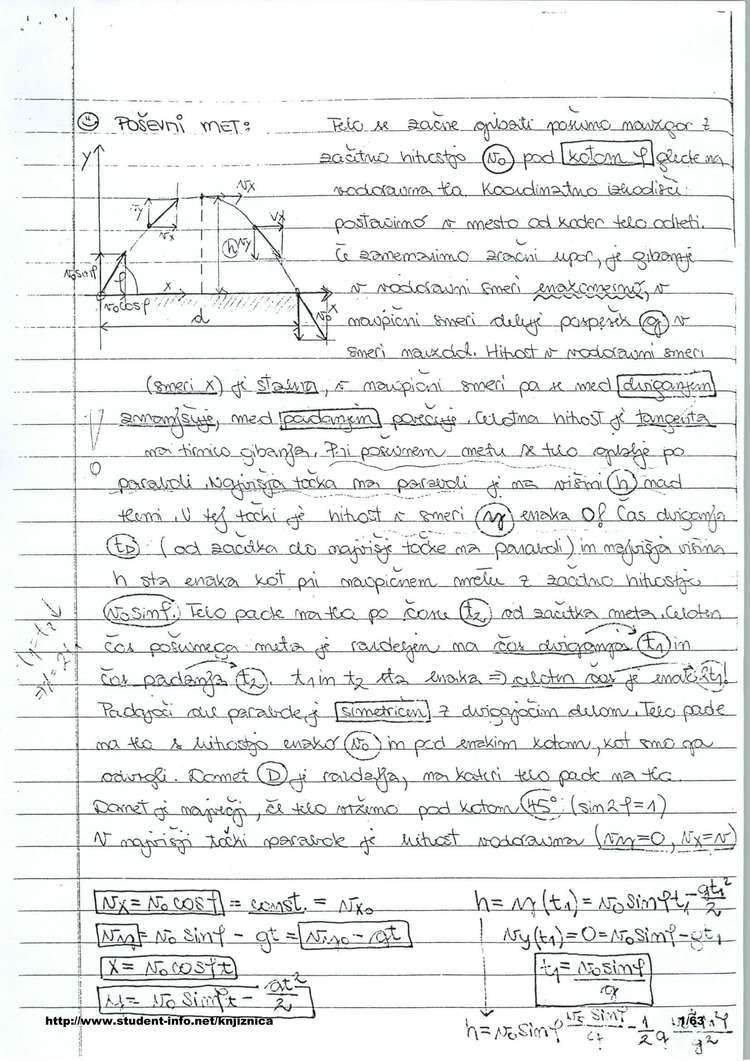 POŠEVNI MET:
Telo se začne gibati poševno navzgor z
začetno hitrostjo v₀ pod kotom φ glede na
vodoravna tla. Koordinatno izhodišče
postavimo v mesto od koder telo odleti.
Če zanemarimo zračni upor, je gibanje
v vodoravni smeri enakomerno, v
navpični smeri deluje pospešek g v
smeri navzdol. Hitrost v vodoravni smeri
y
vx
vy
vx
vx
h
vy
v₀ sinφ
φ
x
v₀ cosφ
x
v₀
d
(smeri x) je stalna, v navpični smeri pa se med dviganjem
zmanjšuje, med padanjem povečuje. Celotna hitrost je tangenta
na tirnico gibanja. Pri poševnem metu se telo giblje po
paraboli. Najvišja točka na paraboli je na višini h nad
tlemi. V tej točki je hitrost v smeri y enaka 0! Čas dviganja
(od začetka do najvišje točke na paraboli) in najvišja višina
h sta enaka kot pri navpičnem metu z začetno hitrostjo
v₀ sinφ. Telo pade na tla po času t₂ od začetka meta. Celoten
čas poševnega meta je razdeljen na čas dviganja t₁ in
čas padanja t₂. t₁ in t₂ sta enaka => celoten čas je enak 2t₁!
Padajoči del parabole je simetričen z dvigajočim delom. Telo pade
na tla s hitrostjo enako v₀ in pod enakim kotom, kot smo ga
odvrgli. Domet D je razdalja, na kateri telo pade na tla.
Domet je največji, če telo vržemo pod kotom 45° (sin2φ=1)
V najvišji točki parabole je hitrost vodoravna (vy=0, vx=v)
t₁=t₂
vx = v₀ cosφ = const. = vx₀
vy = v₀ sinφ - gt = vy₀ - gt
x = v₀ cosφ t
y = v₀ sinφ t - gt²/2
h = y(t₁) = v₀ sinφ t₁ - gt₁²/2
vy(t₁) = 0 = v₀ sinφ - gt₁
t₁ = v₀ sinφ/g
h = v₀ sinφ v₀ sinφ/g - 1/2 g
http://www.student-info.net/knjiznica
1/63